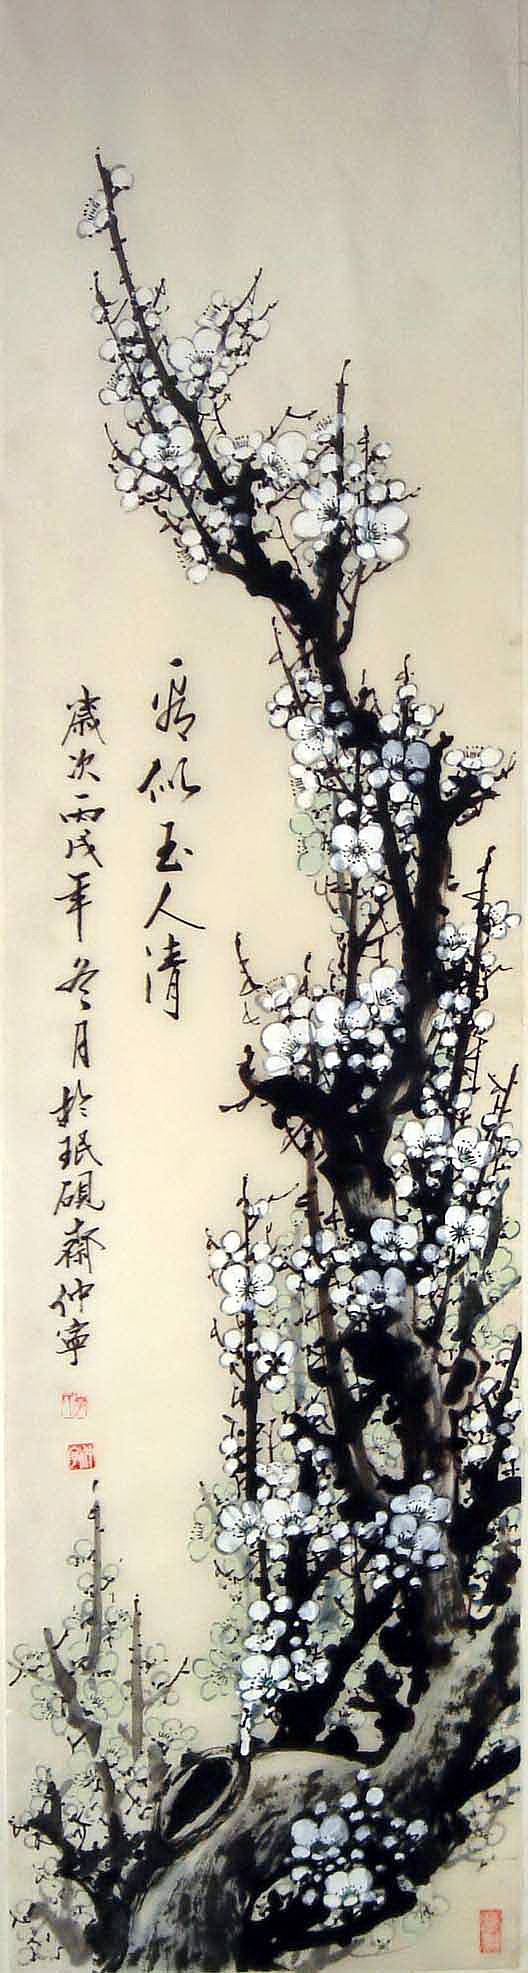 似玉人清
歲次丙戌年冬月於珉硯齋仲寧